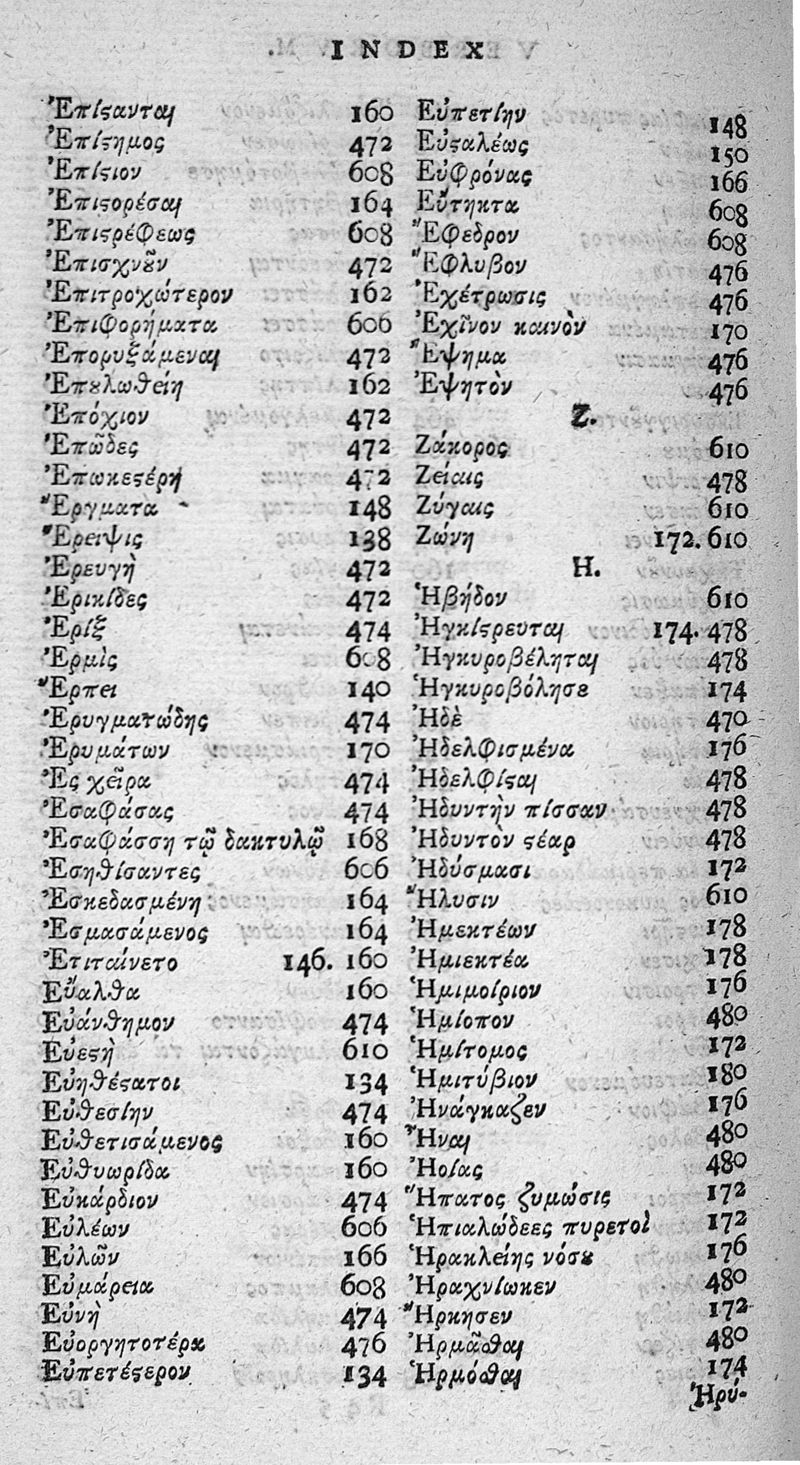 INDEX
Ἐπίϛανται 160
Ἐπίϛημος 472
Ἐπίϛιον 608
Ἐπιϛορέσαι 164
Ἐπιϛρέφεως 608
Ἐπισχνοῦν 472
Ἐπιτροχώτερον 162
Ἐπιφορήματα 606
Ἐπορυξάμεναι 472
Ἐπȣλωθείη 162
Ἐπόχιον 472
Ἐπῶδες 472
Ἐπωκεϛέρη 472
Ἔργματα 148
Ἔρειψις 138
Ἐρευγὴ 472
Ἐρικίδες 472
Ἐρὶξ 474
Ἑρμὶς 608
Ἕρπει 140
Ἐρυγματώδης 474
Ἐρυμάτων 170
Ἐς χεῖρα 474
Ἐσαφάσας 474
Ἐσαφάσση τῷ δακτυλῷ 168
Ἐσηθίσαντες 606
Ἐσκεδασμένη 164
Ἐσμασάμενος 164
Ἐτιταίνετο 146. 160
Εὔαλθα 160
Εὐάνθημον 474
Εὐεϛὴ 610
Εὐηθέϛατοι 134
Εὐθεσίην 474
Εὐθετισάμενος 160
Εὐθυωρίδα 160
Εὐκάρδιον 474
Εὐλέων 606
Εὐλῶν 166
Εὐμάρεια 608
Εὐνὴ 474
Εὐοργητοτέρα 476
Εὐπετέϛερον 134
Εὐπετίην 148
Εὐϛαλέως 150
Εὐφρόνας 166
Εὔτηκτα 608
Ἔφεδρον 608
Ἔφλυβον 476
Ἐχέτρωσις 476
Ἐχῖνον καινὸν 170
Ἕψημα 476
Ἑψητὸν 476
Ζ.
Ζάκορος 610
Ζείαις 478
Ζύγαις 610
Ζώνη 172. 610
Η.
Ἡβήδον 610
Ἠγκίϛρευται 174. 478
Ἠγκυροβέληται 478
Ἠγκυροβόλησε 174
Ἠδὲ 470
Ἠδελφισμένα 176
Ἠδελφίϛαι 478
Ἡδυντὴν πίσσαν 478
Ἡδυντὸν ϛέαρ 478
Ἡδύσμασι 172
Ἤλυσιν 610
Ἡμεκτέων 178
Ἡμιεκτέα 178
Ἡμιμοίριον 176
Ἡμίοπον 480
Ἡμίτομος 172
Ἡμιτύβιον 180
Ἠνάγκαζεν 176
Ἦναι 480
Ἠοίας 480
Ἥπατος ζυμώσις 172
Ἠπιαλώδεες πυρετοὶ 172
Ἡρακλείης νόσȣ 176
Ἠραχνίωκεν 480
Ἤρκησεν 172
Ἠρμᾶσθαι 480
Ἡρμόσθαι 174
Ἠρύ-